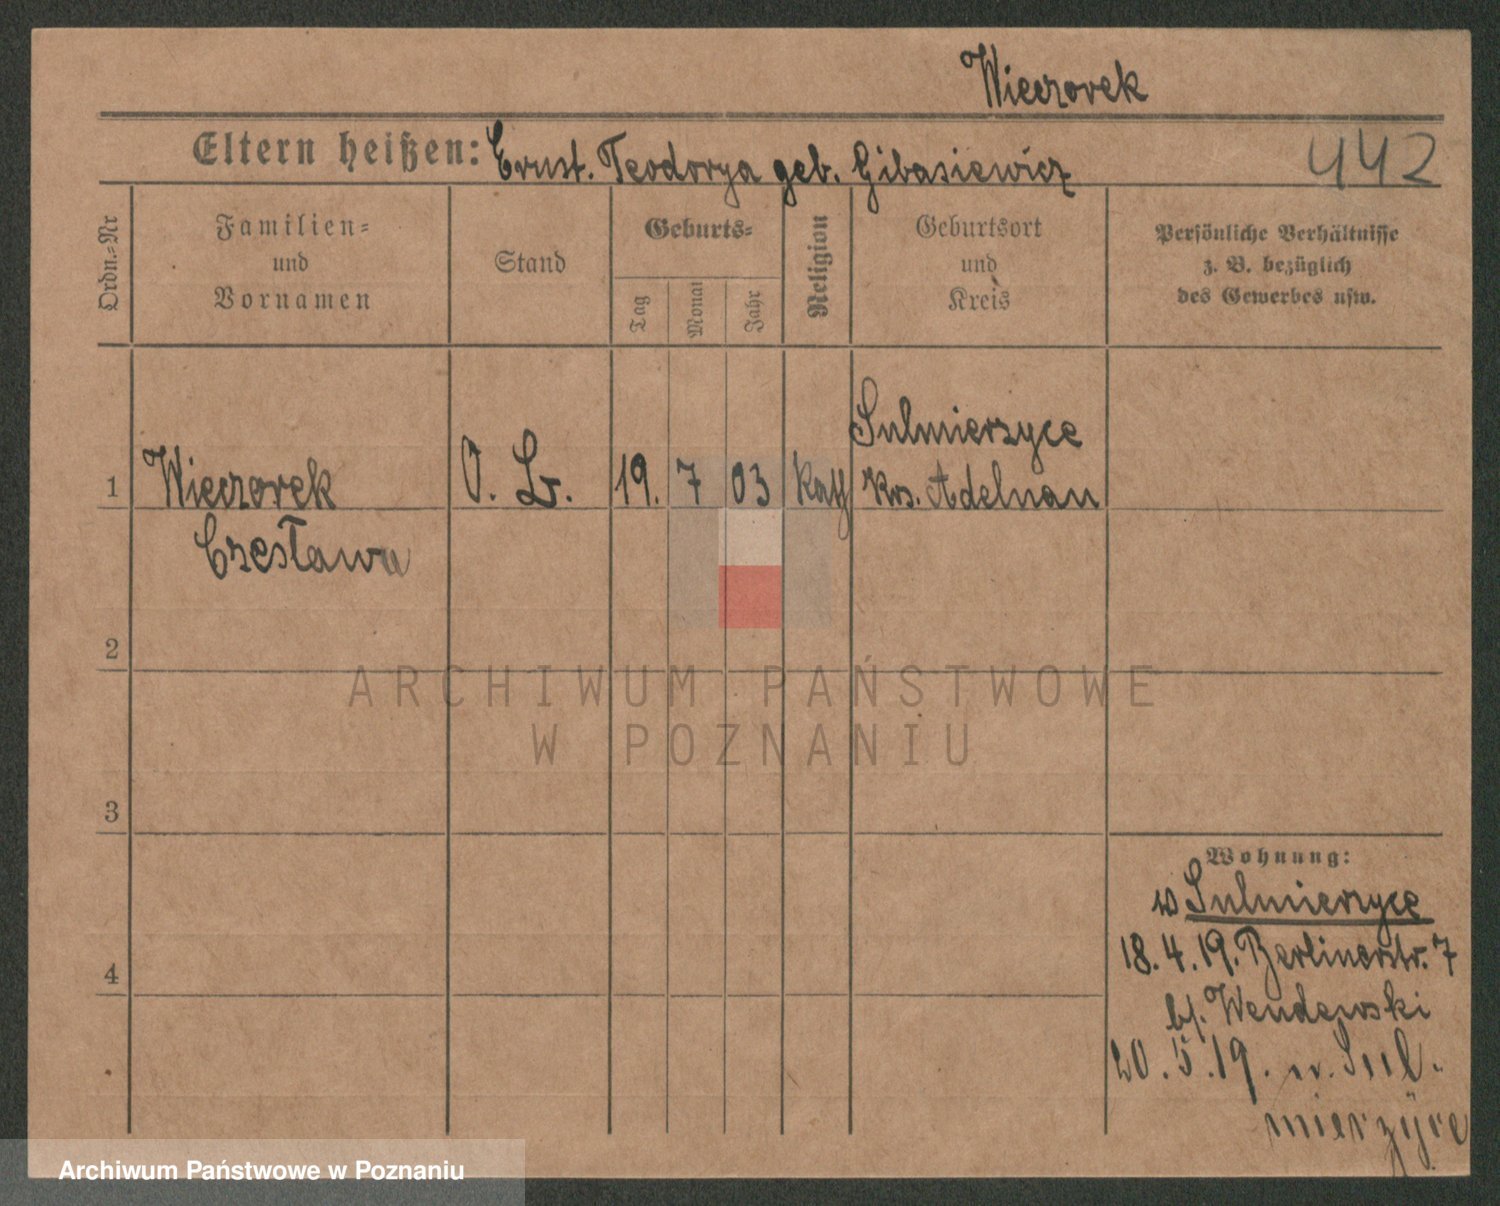 Wieczorek
Eltern heißen: Ernst. Teodorya geb. Gibasiewicz
442
Ordn.-Nr
Familien-
und
Vornamen
Stand
Geburts-
Tag
Monat
Jahr
Religion
Geburtsort
und
Kreis
Persönliche Verhältnisse
z. B. bezüglich
des Gewerbes usw.
1 Wieczorek O. L. 19. 7 03 Kath Sulmierzyce
Krs. Adelnau
Czesława
2
3
4
Wohnung:
Sulmierzyce
18. 4. 19. Berlinerstr. 7
bj. Wendewski
20. 5. 19. n. Sul-
mierzyce
ARCHIWUM PAŃSTWOWE
W POZNANIU
Archiwum Państwowe w Poznaniu